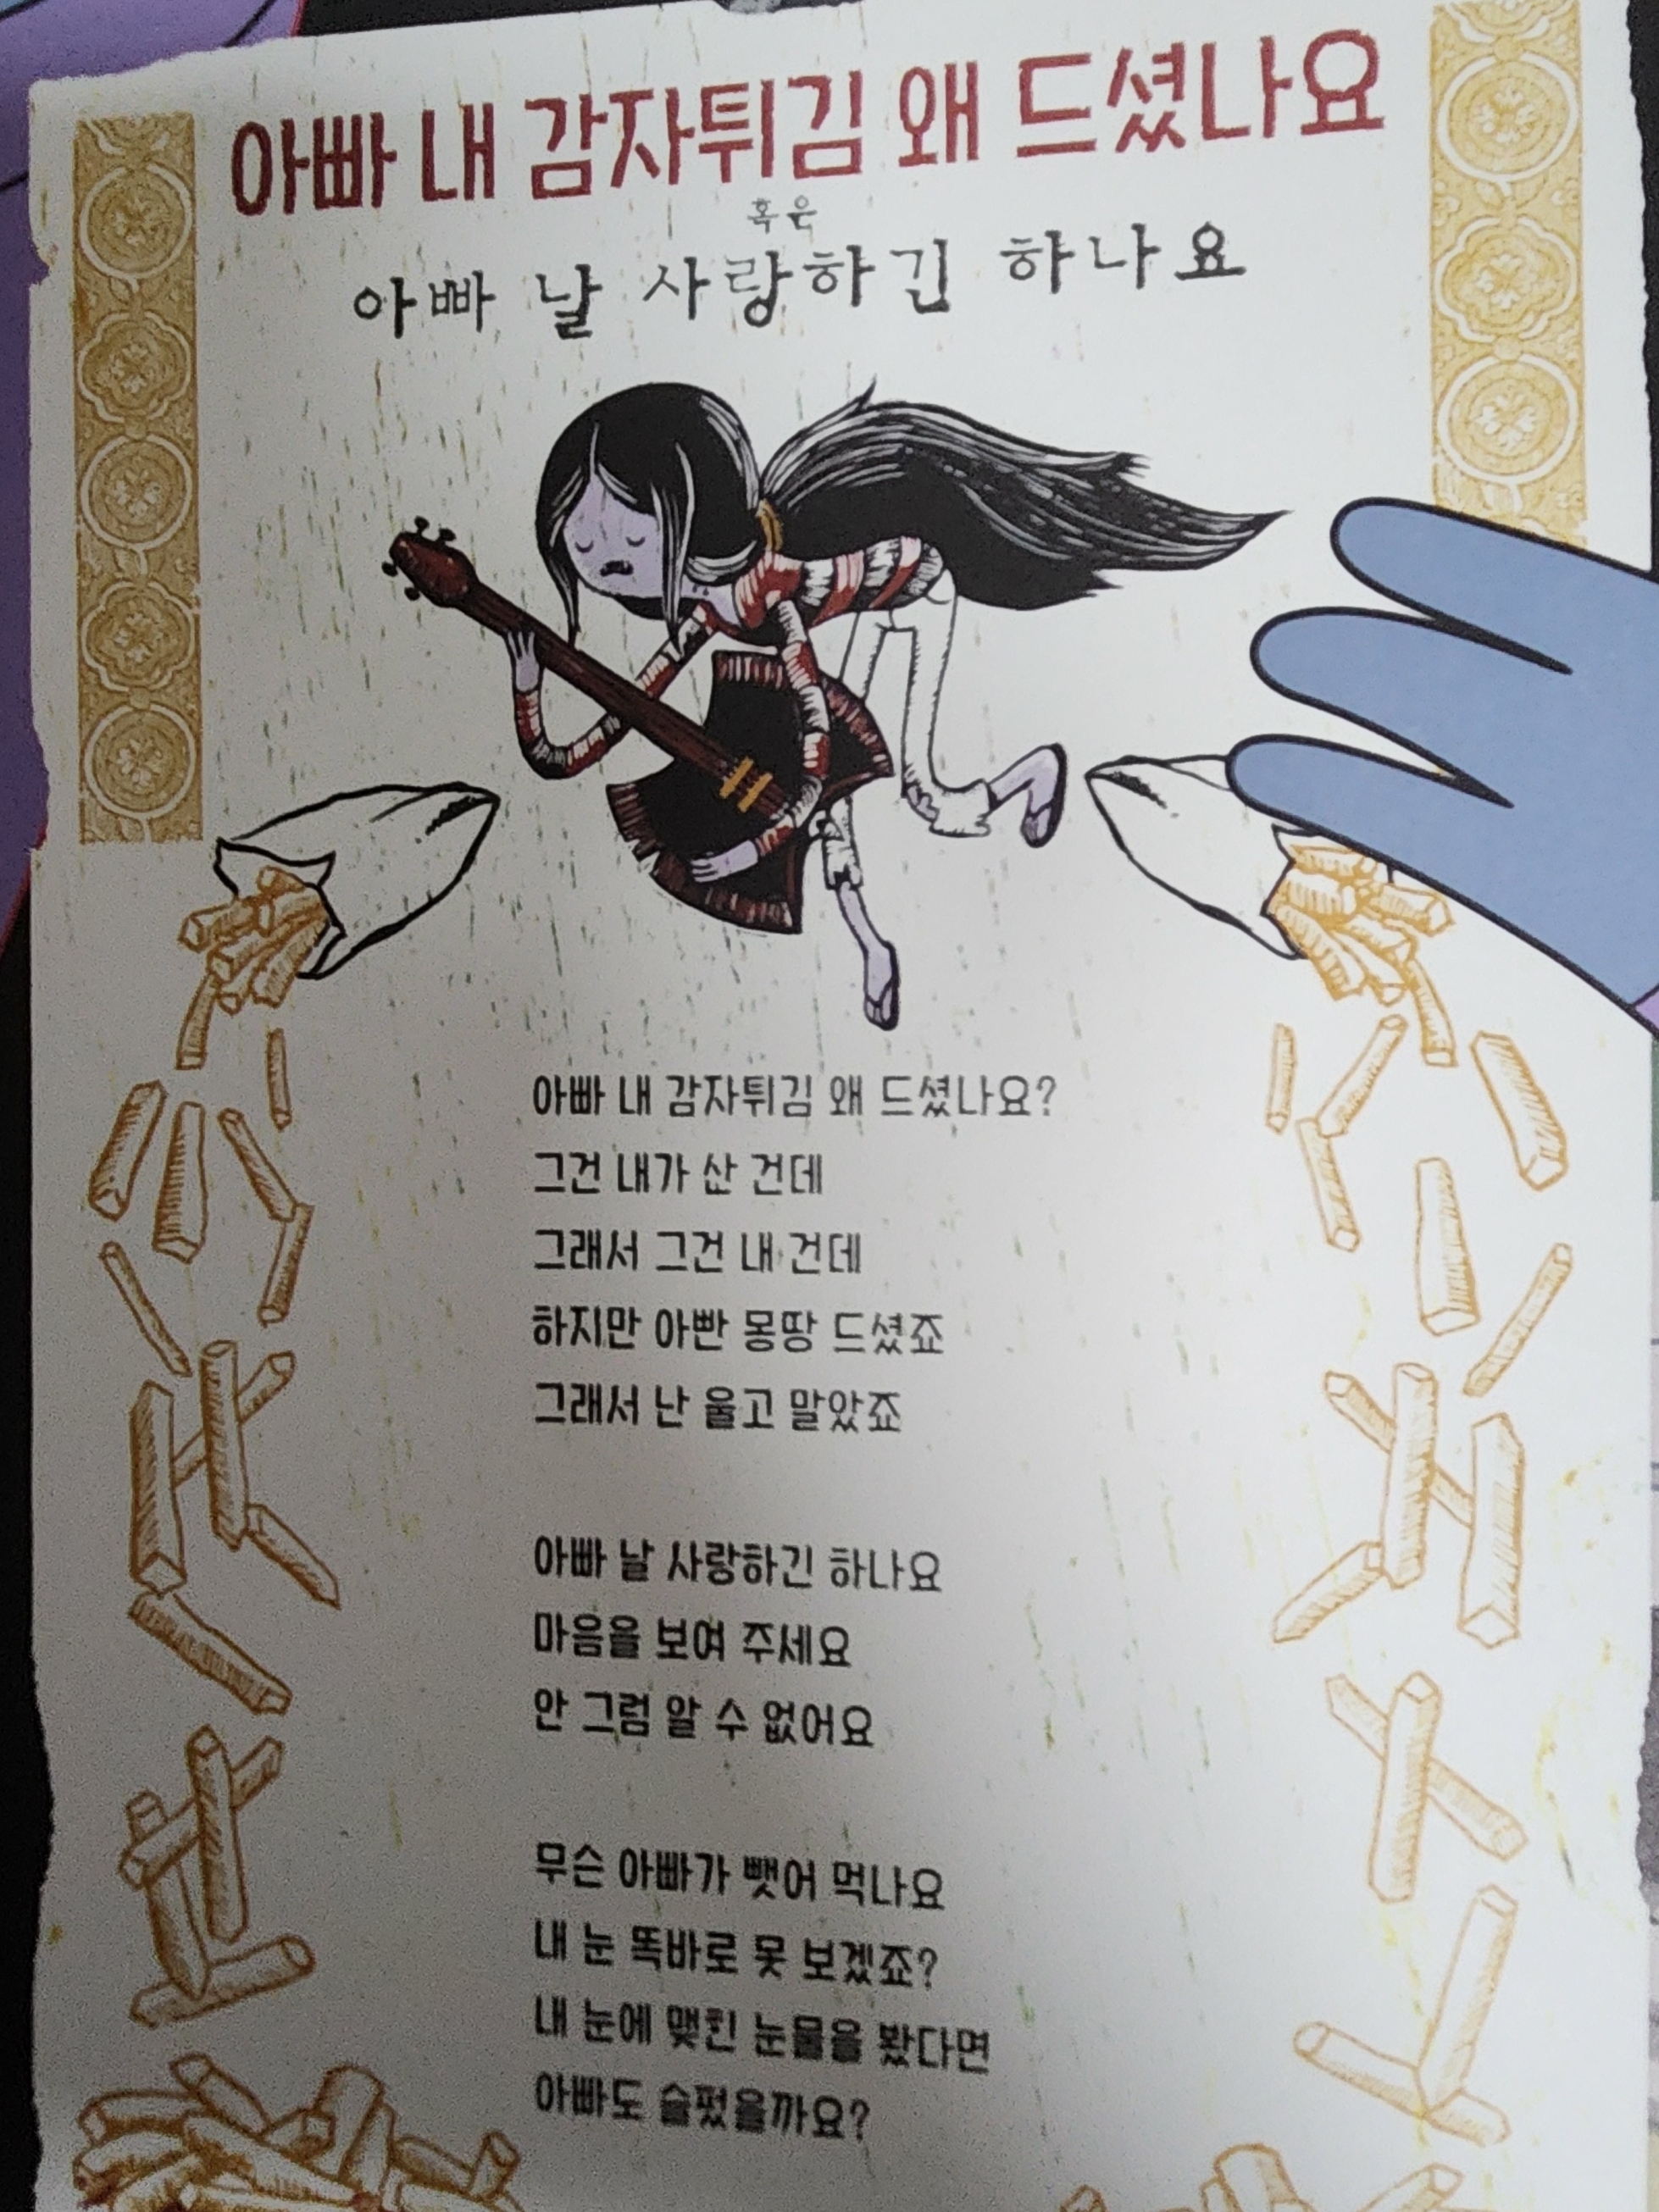 아빠 내 감자튀김 왜 드셨나요
혹은
아빠 날 사랑하긴 하나요
아빠 내 감자튀김 왜 드셨나요?
그건 내가 산 건데
그래서 그건 내 건데
하지만 아빤 몽땅 드셨죠
그래서 난 울고 말았죠
아빠 날 사랑하긴 하나요
마음을 보여 주세요
안 그럼 알 수 없어요
무슨 아빠가 뺏어 먹나요
내 눈 똑바로 못 보겠죠?
내 눈에 맺힌 눈물을 봤다면
아빠도 슬펐을까요?